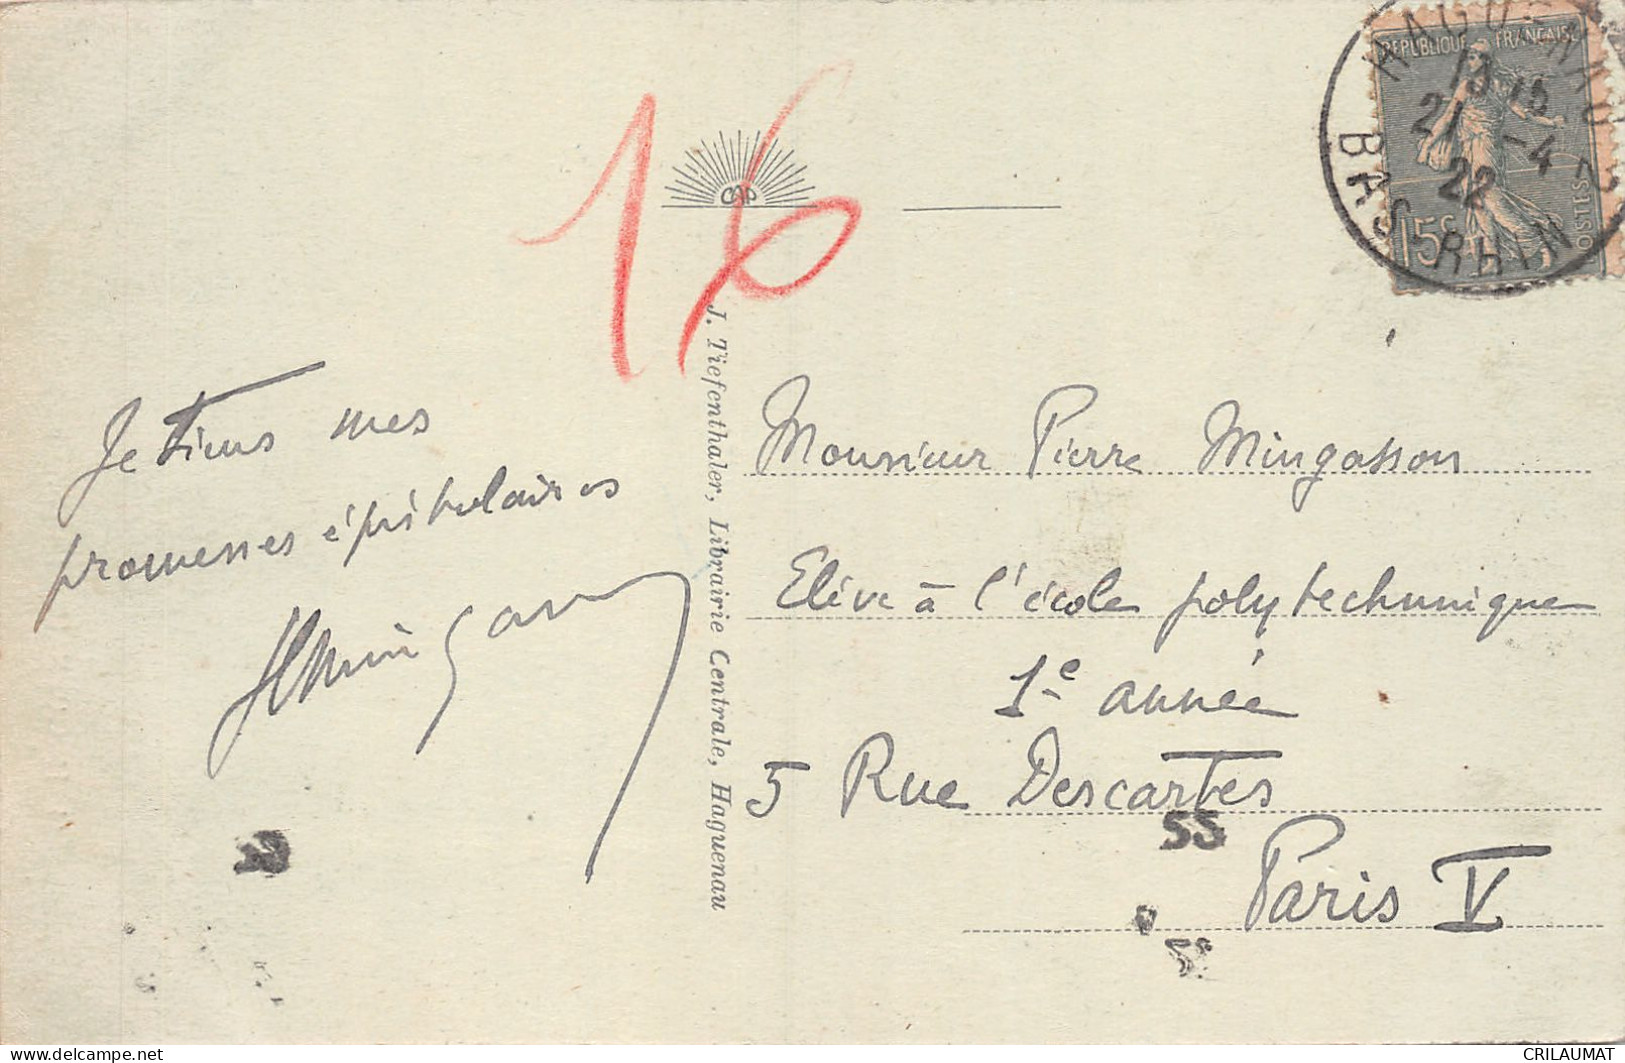 HAGUENAU
13 15
21 -4
22
BAS-RHIN
REPUBLIQUE FRANÇAISE
15c
POSTES
16
J. Tiefenthaler, Librairie Centrale, Haguenau
Je tiens mes
promesses épistolaires
Monsieur Pierre Mingasson
Elève à l'école polytechnique
1e année
5 Rue Descartes
55
Paris V
delcampe.net
CRILAUMAT